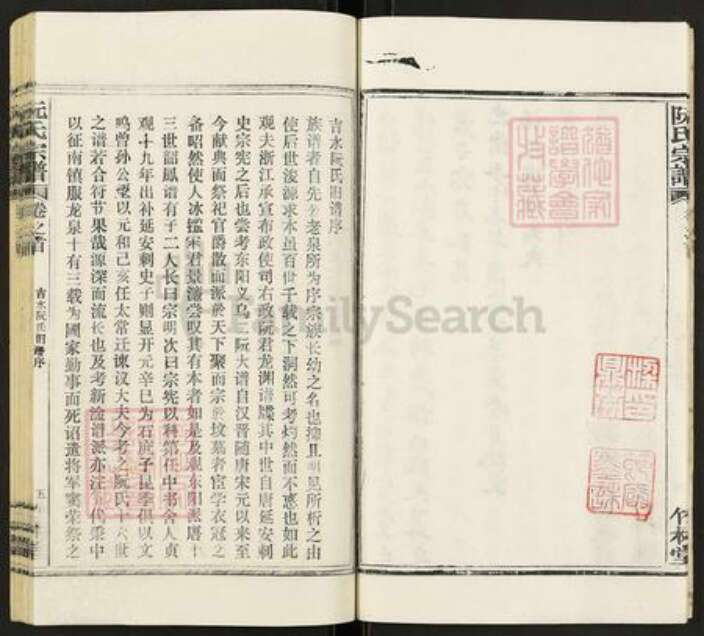 阮氏宗譜
竹林堂
吉水阮氏旧谱序
族谱者自先公老泉所为序宗族长幼之名也按且明见所析之由
使后世浚源求本虽百世千载之下洞然可考灼然而不惑也如此
观夫浙江承宣布政使司右政阮君龙渊谱牒其中世自唐延安刺
史宗宪之后也尝考东阳义乌二阮大谱自汉晋随唐宋元以来至
今献典而祭祀官爵散而派於天下聚而宗於坟墓者宦学衣冠之
备昭然使人冰鑑宋君景濂尝叹其有本者如是及观东阳派唐十
三世韶凤谱有子二人长曰宗明次曰宗宪以科第任中书舍人贞
观十九年出补延安刺史子则显开元辛巳为石庶子昆季俱以文
鸣曾孙公燮以元和己亥任太常迁谏汉大夫今考之阮氏十六世
之谱若合符节果哉源深而流长也及考新淦谱派亦注 代秉中
以征南镇服龙泉十有三载为國家勤事而死诏遣将军窦荣祭之
阮氏宗譜
卷之首
吉水阮氏旧谱序
五
FamilySearch